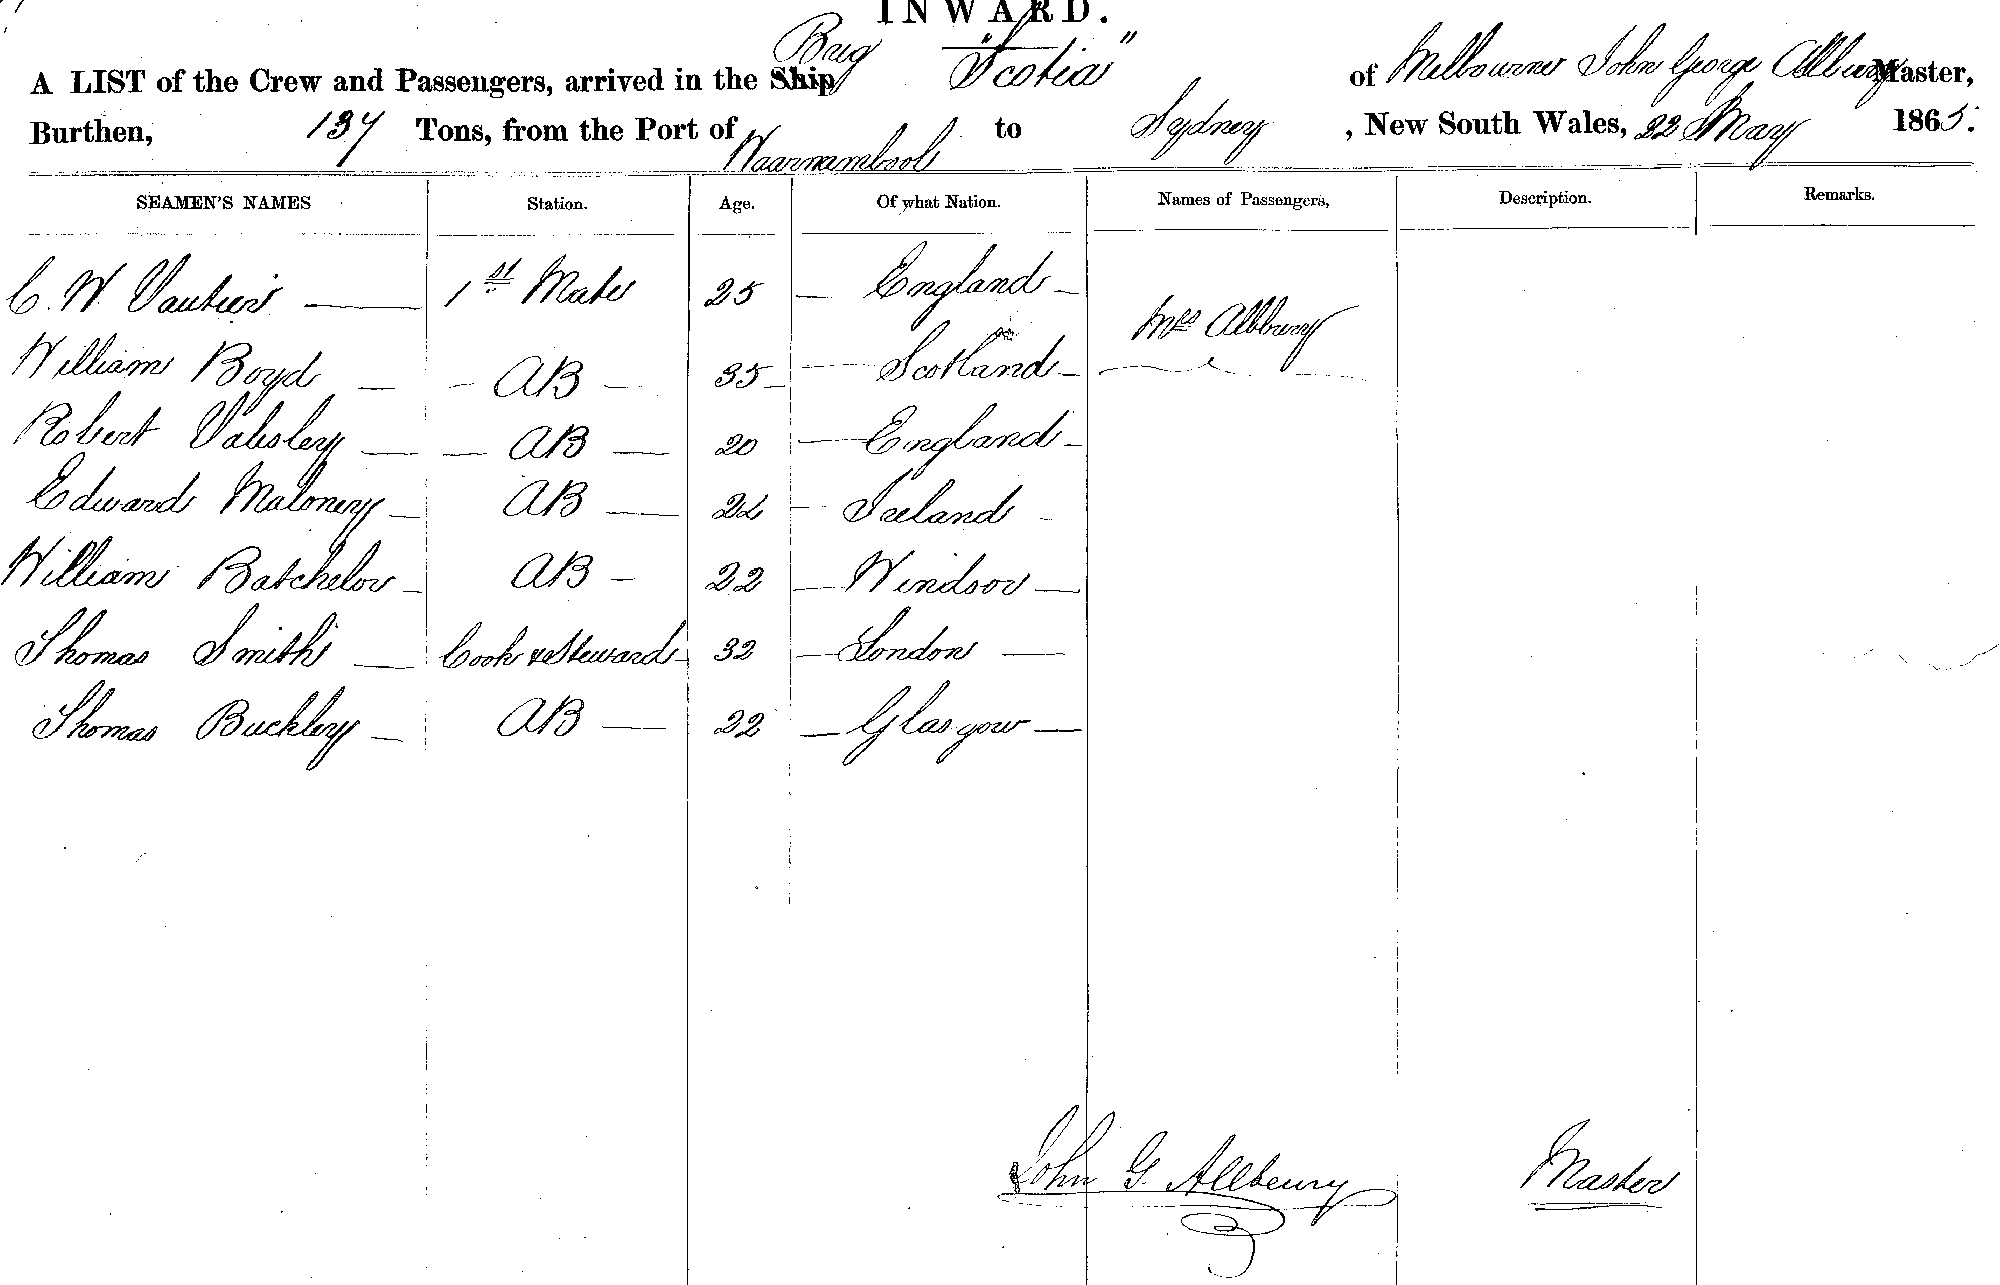 INWARD.
A LIST of the Crew and Passengers, arrived in the Ship Brig "Scotia" of Melbourne John George Allbury Master,
Burthen, 137 Tons, from the Port of Waarnambool to Sydney, New South Wales, 22 May 1865.
SEAMEN'S NAMES Station. Age. Of what Nation. Names of Passengers, Description. Remarks.
C. W. Vautier 1st Mate 25 England
Mrs Allbury
William Boyd AB 35 Scotland
Robert AB 20 England
Edward Maloney AB Ireland
William Batchelor AB 22 Windsor
Thomas Smith Cook & Steward 32 London
Thomas Buckley AB 22 Glasgow
John G. Allbeury Master